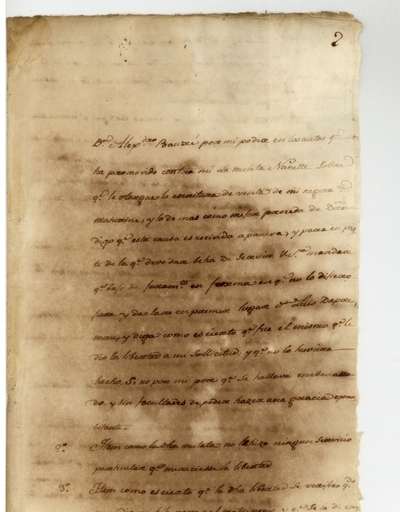 2
Dn. Alexdro Bauré por mi poder en los autos qe.
ha promovido contra mi la mulata Nanette sobre
qe. le otorgue la escritura de venta de mi negra
y lo demas como mejor proceda de dro.
digo qe. esta causa es recivida a prueva, y para en pte.
de la qe. devo dar se ha de servir Vs. mandar
qe. bajo de juramto. en forma en qe. no lo difiero
jure y declare en primer lugar Dn. Luis
y diga como es cierto qe. fue el mismo qe. le
dio la libertad a mi sollicitud, y qe. no lo huviera
hecho, si no por mi por qe. se hallava
do, y sin facultades de poder hazer una gracia
2o. Item como la dha mulata no le hizo ningun servicio
particular qe. mereciesse la libertad
3o. Item como es cierto qe. la dha libertad se verifico qdo.